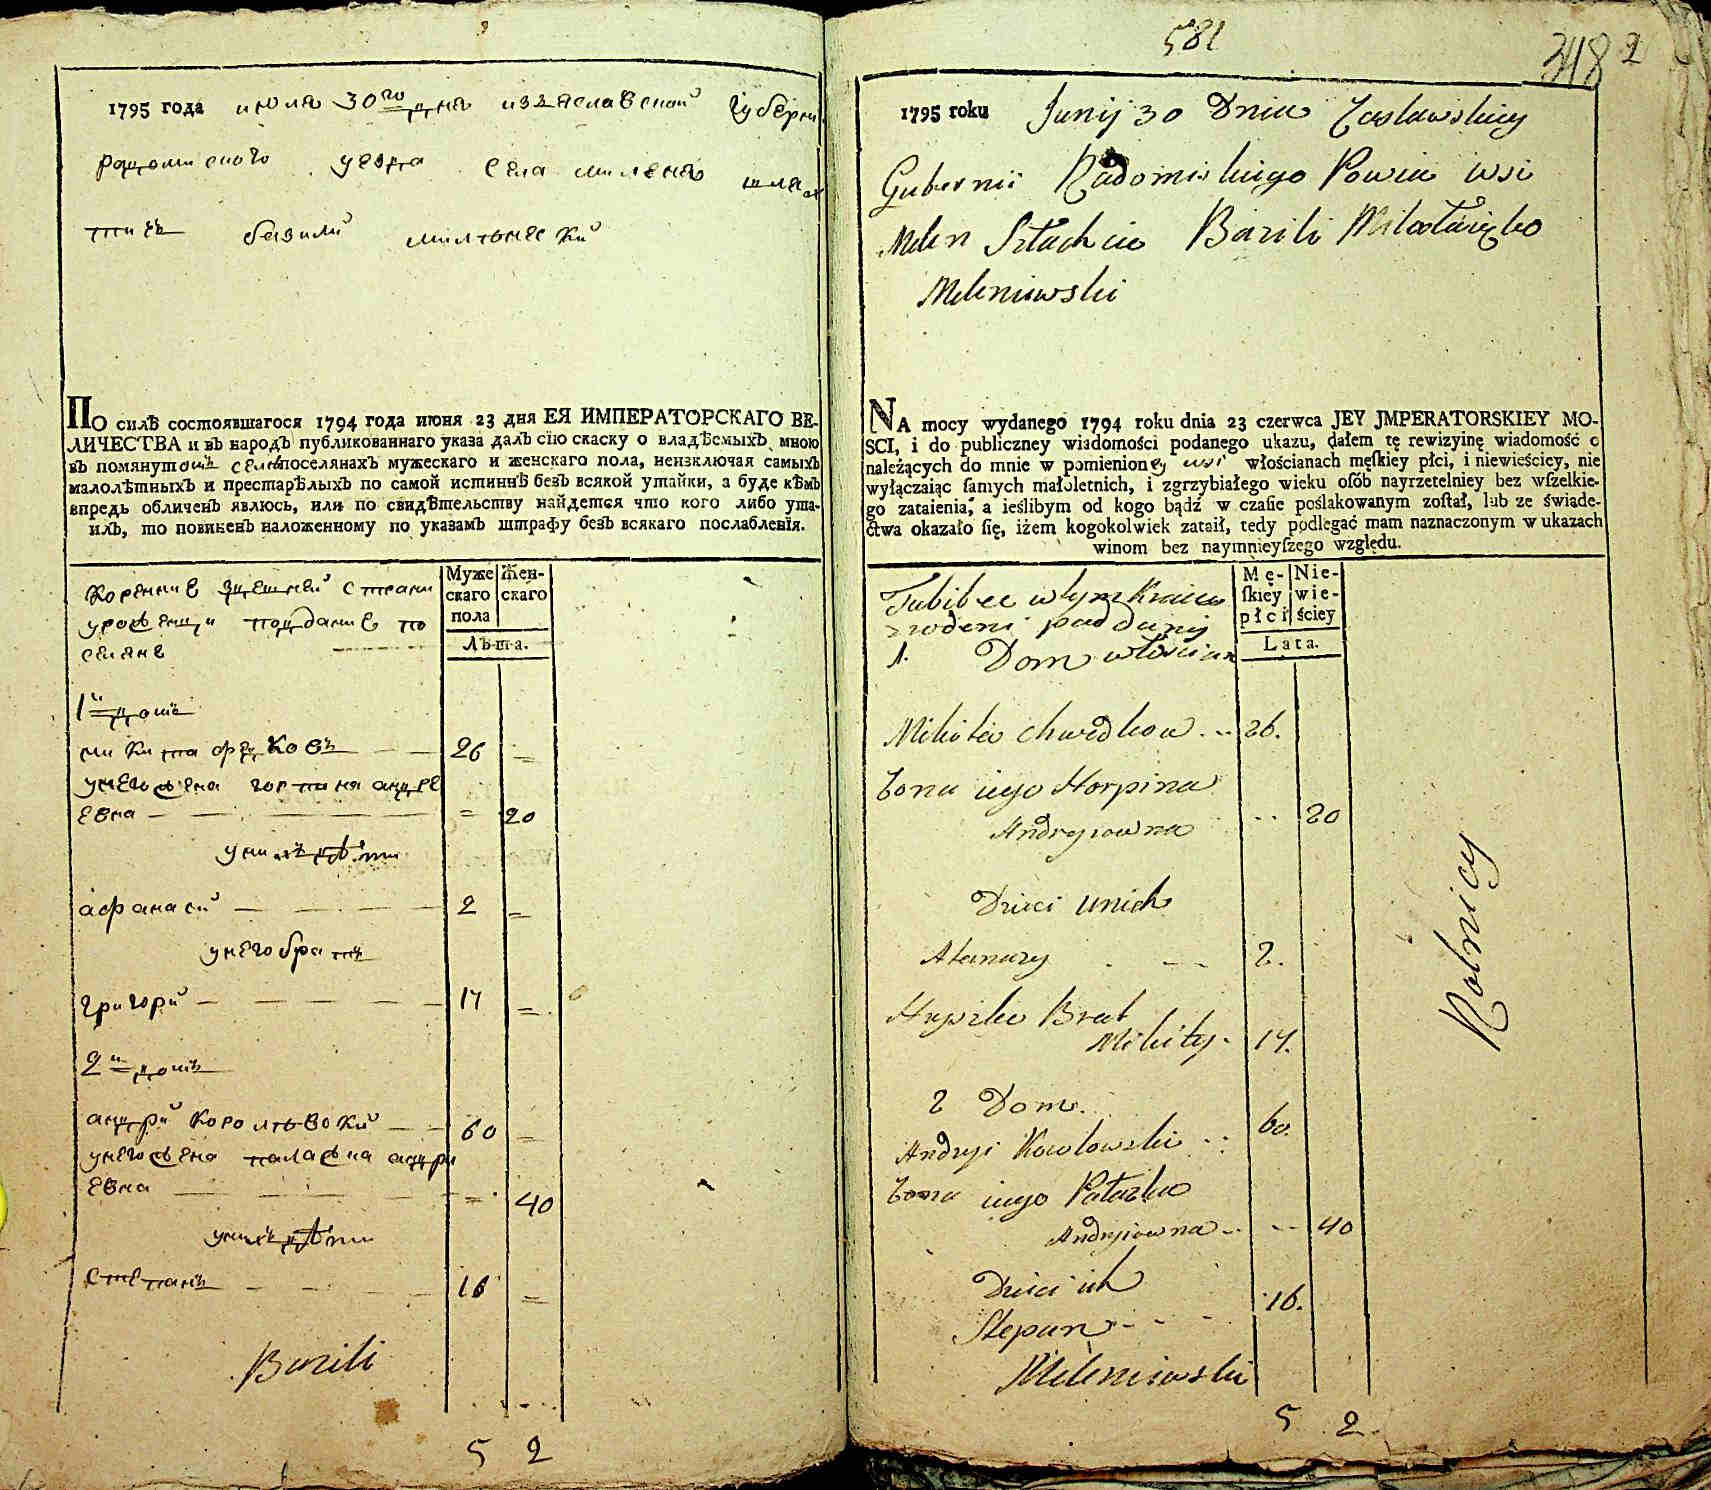 1795 года июля 30го дня изяславской губерни
радомиского уезда села миленя шлях
тичъ базили
По силѣ состоявшагося 1794 года июня 23 дня ЕЯ ИМПЕРАТОРСКАГО ВЕ-
ЛИЧЕСТВА и въ народъ публикованнаго указа далъ сїю скаску о владѣемыхъ мною
въ помянутомъ селѣ поселянахъ мужескаго и женскаго пола, неизключая самыхъ
малолѣтныхъ и престарѣлыхъ по самой истиннѣ безъ всякой утайки, а буде кѣмъ
впредь обличенъ явлюсь, или по свидѣтельству найдется что кого либо ута-
илъ, то повиненъ наложенному по указамъ штрафу безъ всякаго послабленїя.
Муже Жен-
скаго скаго
пола
Лѣта.
коренние здешней страни
уроженци поддание по
селяне
1й домъ
микита 26 =
унего жена горпина андре
евна = 20
унихъ дѣти
афанасий 2 =
унего братъ
григорий 17 =
2й домъ
андрей 60 =
унего жена палажка андри
евна = 40
унихъ дѣти
степанъ 16 =
Bazili
5 2
581
348 2
1795 roku Junij 30 Dnia Zasławskiey
Gubernii Radomiskiego Powia wsi
Melen Szlachcic Bazili
Meleniewski
NA mocy wydanego 1794 roku dnia 23 czerwca JEY JMPERATORSKIEY MO-
SCI, i do publiczney wiadomości podanego ukazu, dałem tę rewizyinę wiadomość o
należących do mnie w pomienioney wsi włościanach męſkiey płci, i niewieściey, nie
wyłączaiąc ſamych małoletnich, i zgrzybiałego wieku oſób nayrzetelniey bez wſzelkie-
go zataienia, a ieślibym od kogo bądź w czaſie poślakowanym zoſtał, lub ze świade-
ctwa okazało ſię, iżem kogokolwiek zataił, tedy podlegać mam naznaczonym w ukazach
winom bez naymnieyſzego względu.
Mę- Nie-
ſkiey wie-
płci ściey
Lata.
Tubilce w tym Kraiu
zrodzeni poddanij
1. Dom włościan
Mikita Chwedkow 26.
Żona iego Horpina
Andreiowna 20
Dzieci unich
Atanazy 2.
Hryszko Brat
Mikity 17.
2 Dom.
Andryi 60.
Żona iego Pałazka
Andryiowna 40
Dzieci ich
Stepan 16.
Meleniewski
5 2
Rolnicy